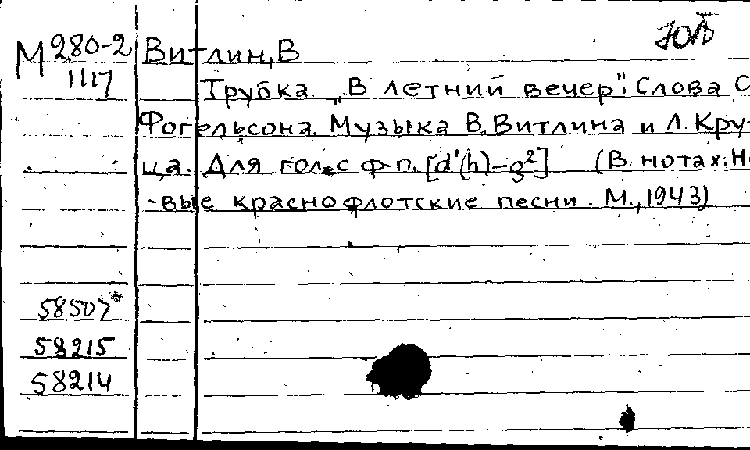 М 280-2
1117
Витлин, В
Трубка. „В летний вечер". Слова С
Фогельсона. Музыка В. Витлина и Л. Кру
ца. Для гол. с ф-п. [d'(h)-g²] (В нотах: Н
-вые краснофлотские песни. М., 1943)
58507*
58215
58214